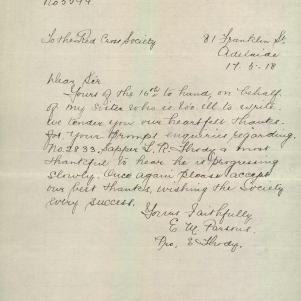 To the Red Cross Society
81 Franklin St
Adelaide
17.5.18
Dear Sir
Yours of the 16th to hand, on behalf
of my sister who is too ill to write.
We tender you our heartfelt thanks.
for your prompt enquiries regarding
No. 2833. Sapper L. R. Thody & most
thankful to hear he is progressing
slowly. Once again please accept
our best thanks, wishing the Society
every success.
Yours Faithfully
E M Parsons.
Pro. E Thody.